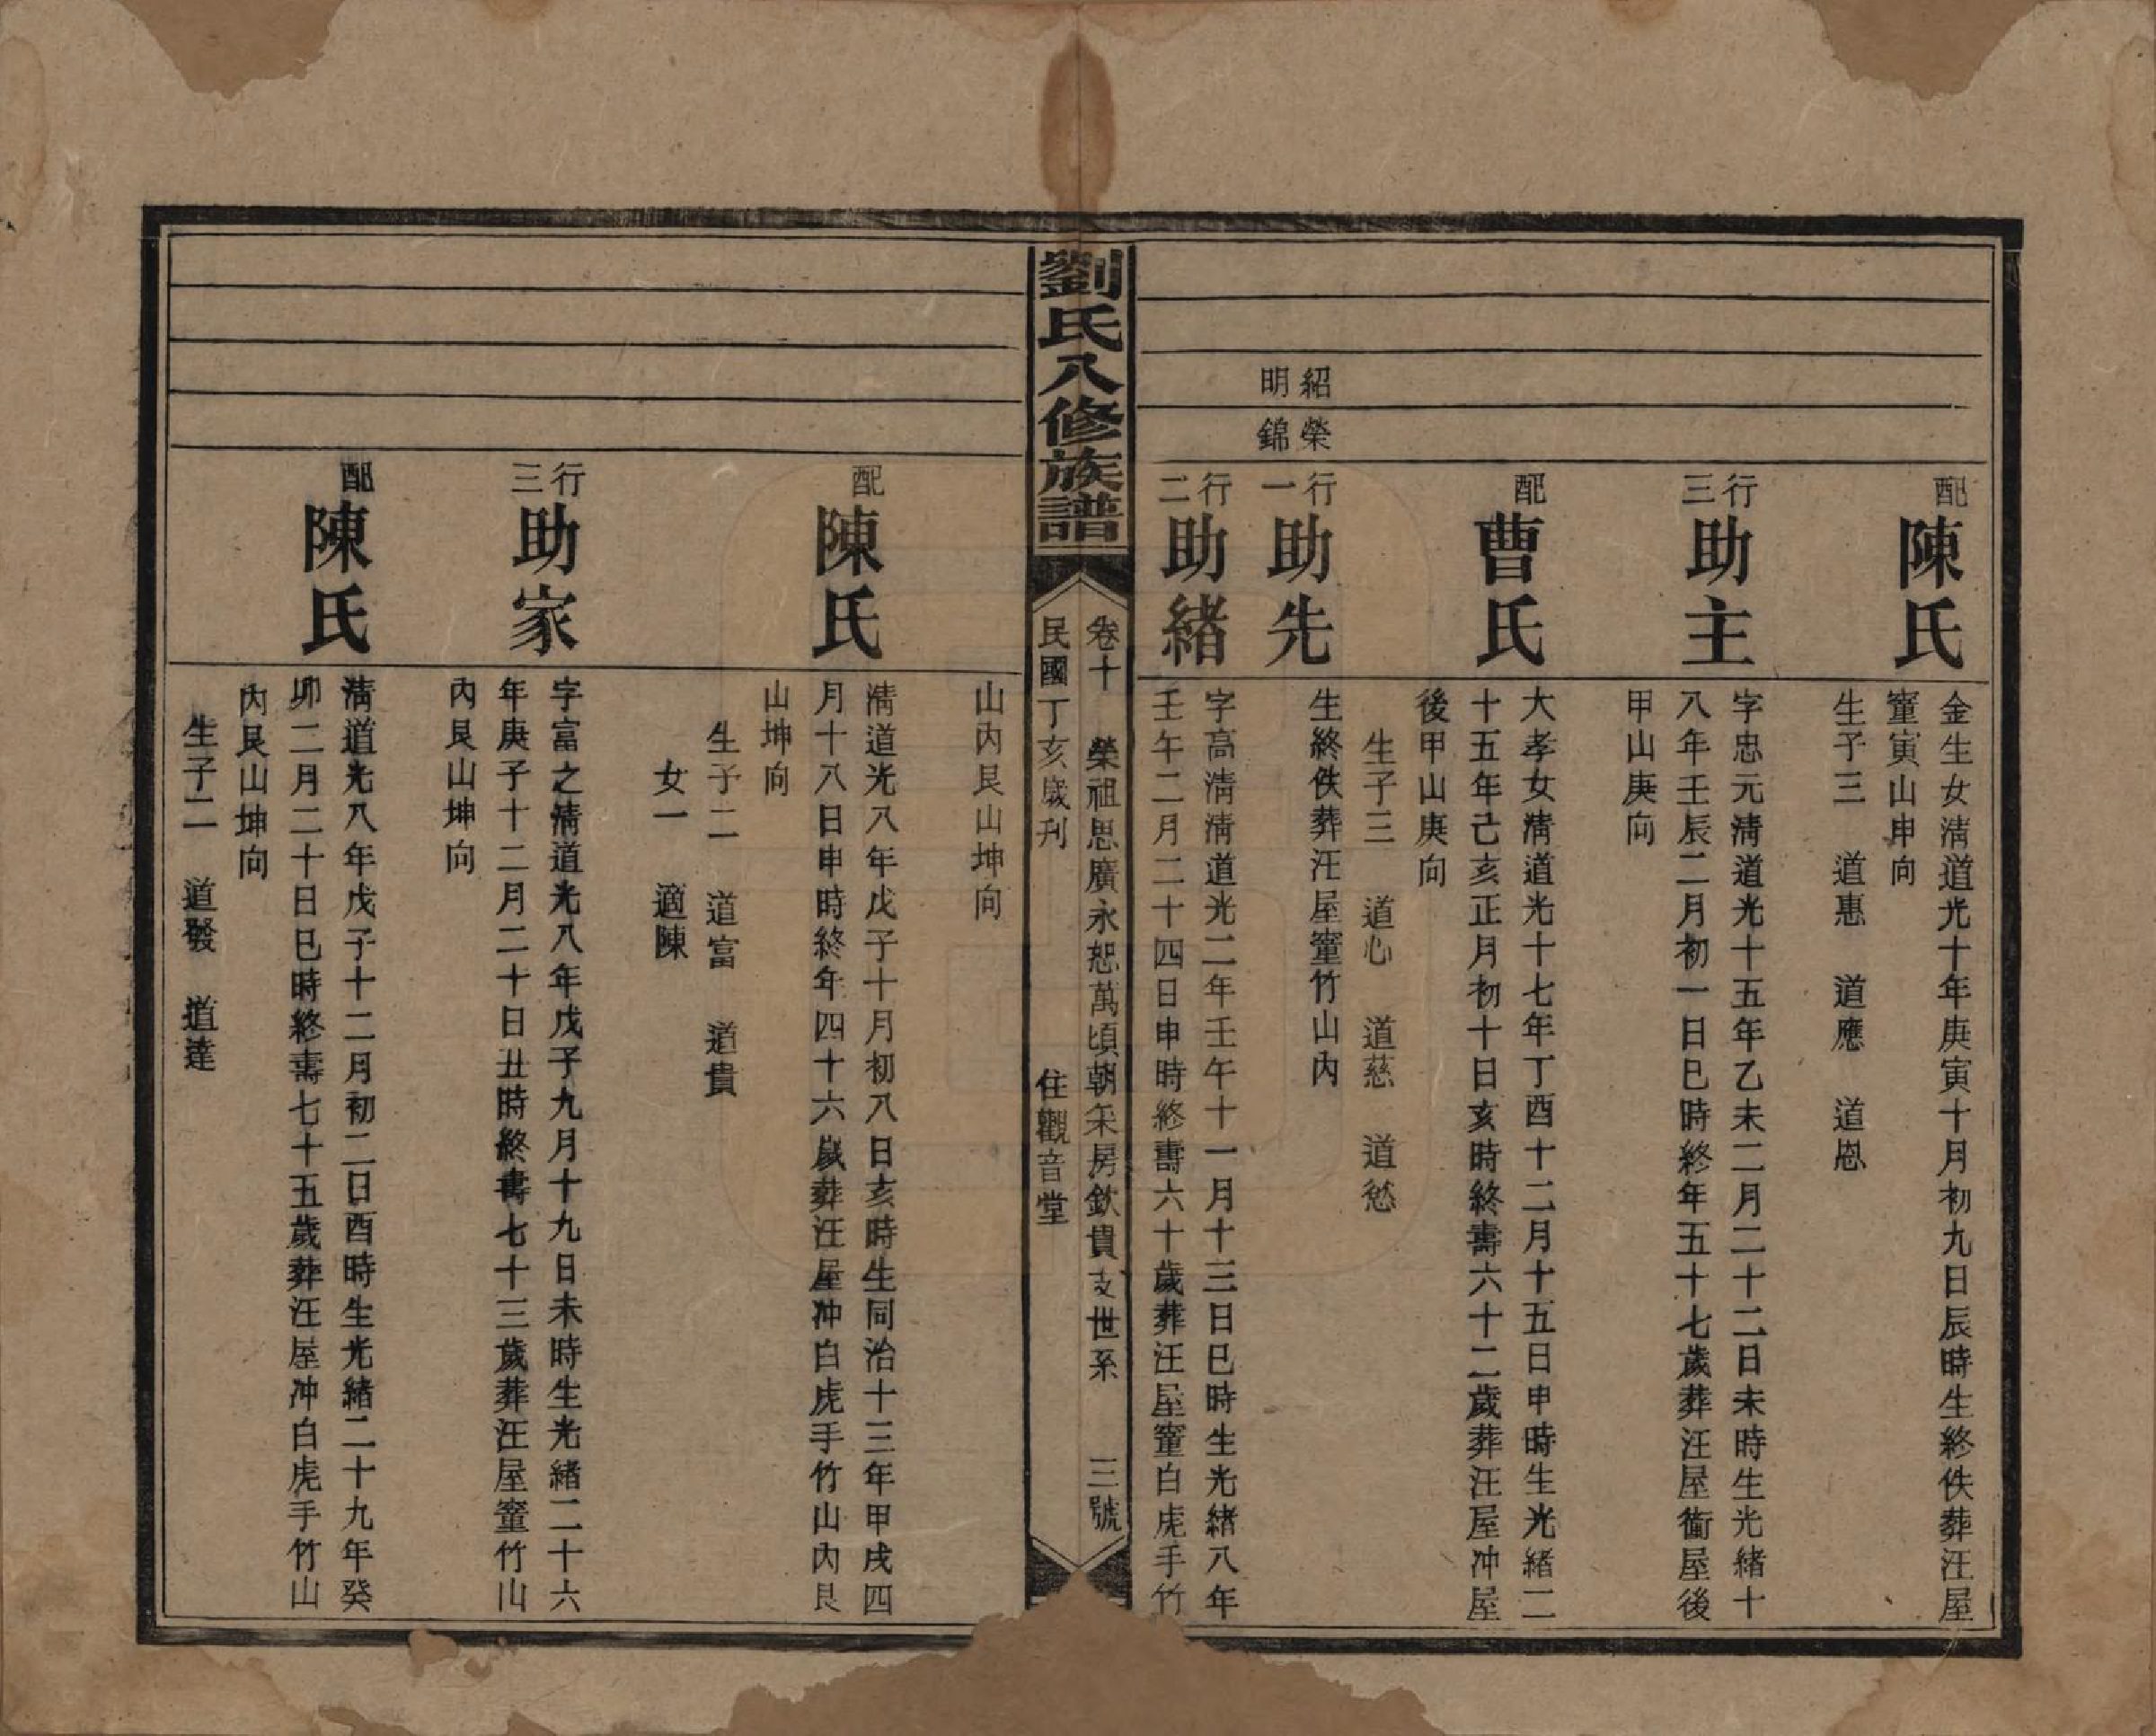 配
陳氏
金生女清道光十年庚寅十月初九日辰時生終佚葬汪屋
窰寅山申向
生子三 道惠 道應 道恩
行三
助主
字忠元清道光十五年乙未二月二十二日未時生光緒十
八年壬辰二月初一日巳時終年五十七歲葬汪屋衝屋後
甲山庚向
配
曹氏
大孝女清道光十七年丁酉十二月十五日申時生光緒二
十五年己亥正月初十日亥時終壽六十二歲葬汪屋冲屋
後甲山庚向
生子三 道心 道慈 道愁
紹明
榮錦
行一
助先
生終佚葬汪屋窰竹山內
行二
助緒
字高清清道光二年壬午十一月十三日巳時生光緒八年
壬午二月二十四日申時終壽六十歲葬汪屋窰白虎手竹
劉氏八修族譜
卷十 榮祖思廣永恕萬頃朝宋房欽貴支世系 三號
民國丁亥歲刋 住觀音堂
山內艮山坤向
配
陳氏
清道光八年戊子十月初八日亥時生同治十三年甲戌四
月十八日申時終年四十六歲葬汪屋冲白虎手竹山內艮
山坤向
生子二 道富 道貴
女一 適陳
行三
助家
字富之清道光八年戊子九月十九日未時生光緒二十六
年庚子十二月二十日丑時終壽七十三歲葬汪屋窰竹山
內艮山坤向
配
陳氏
清道光八年戊子十二月初二日酉時生光緒二十九年癸
卯二月二十日巳時終壽七十五歲葬汪屋冲白虎手竹山
內艮山坤向
生子二 道發 道達